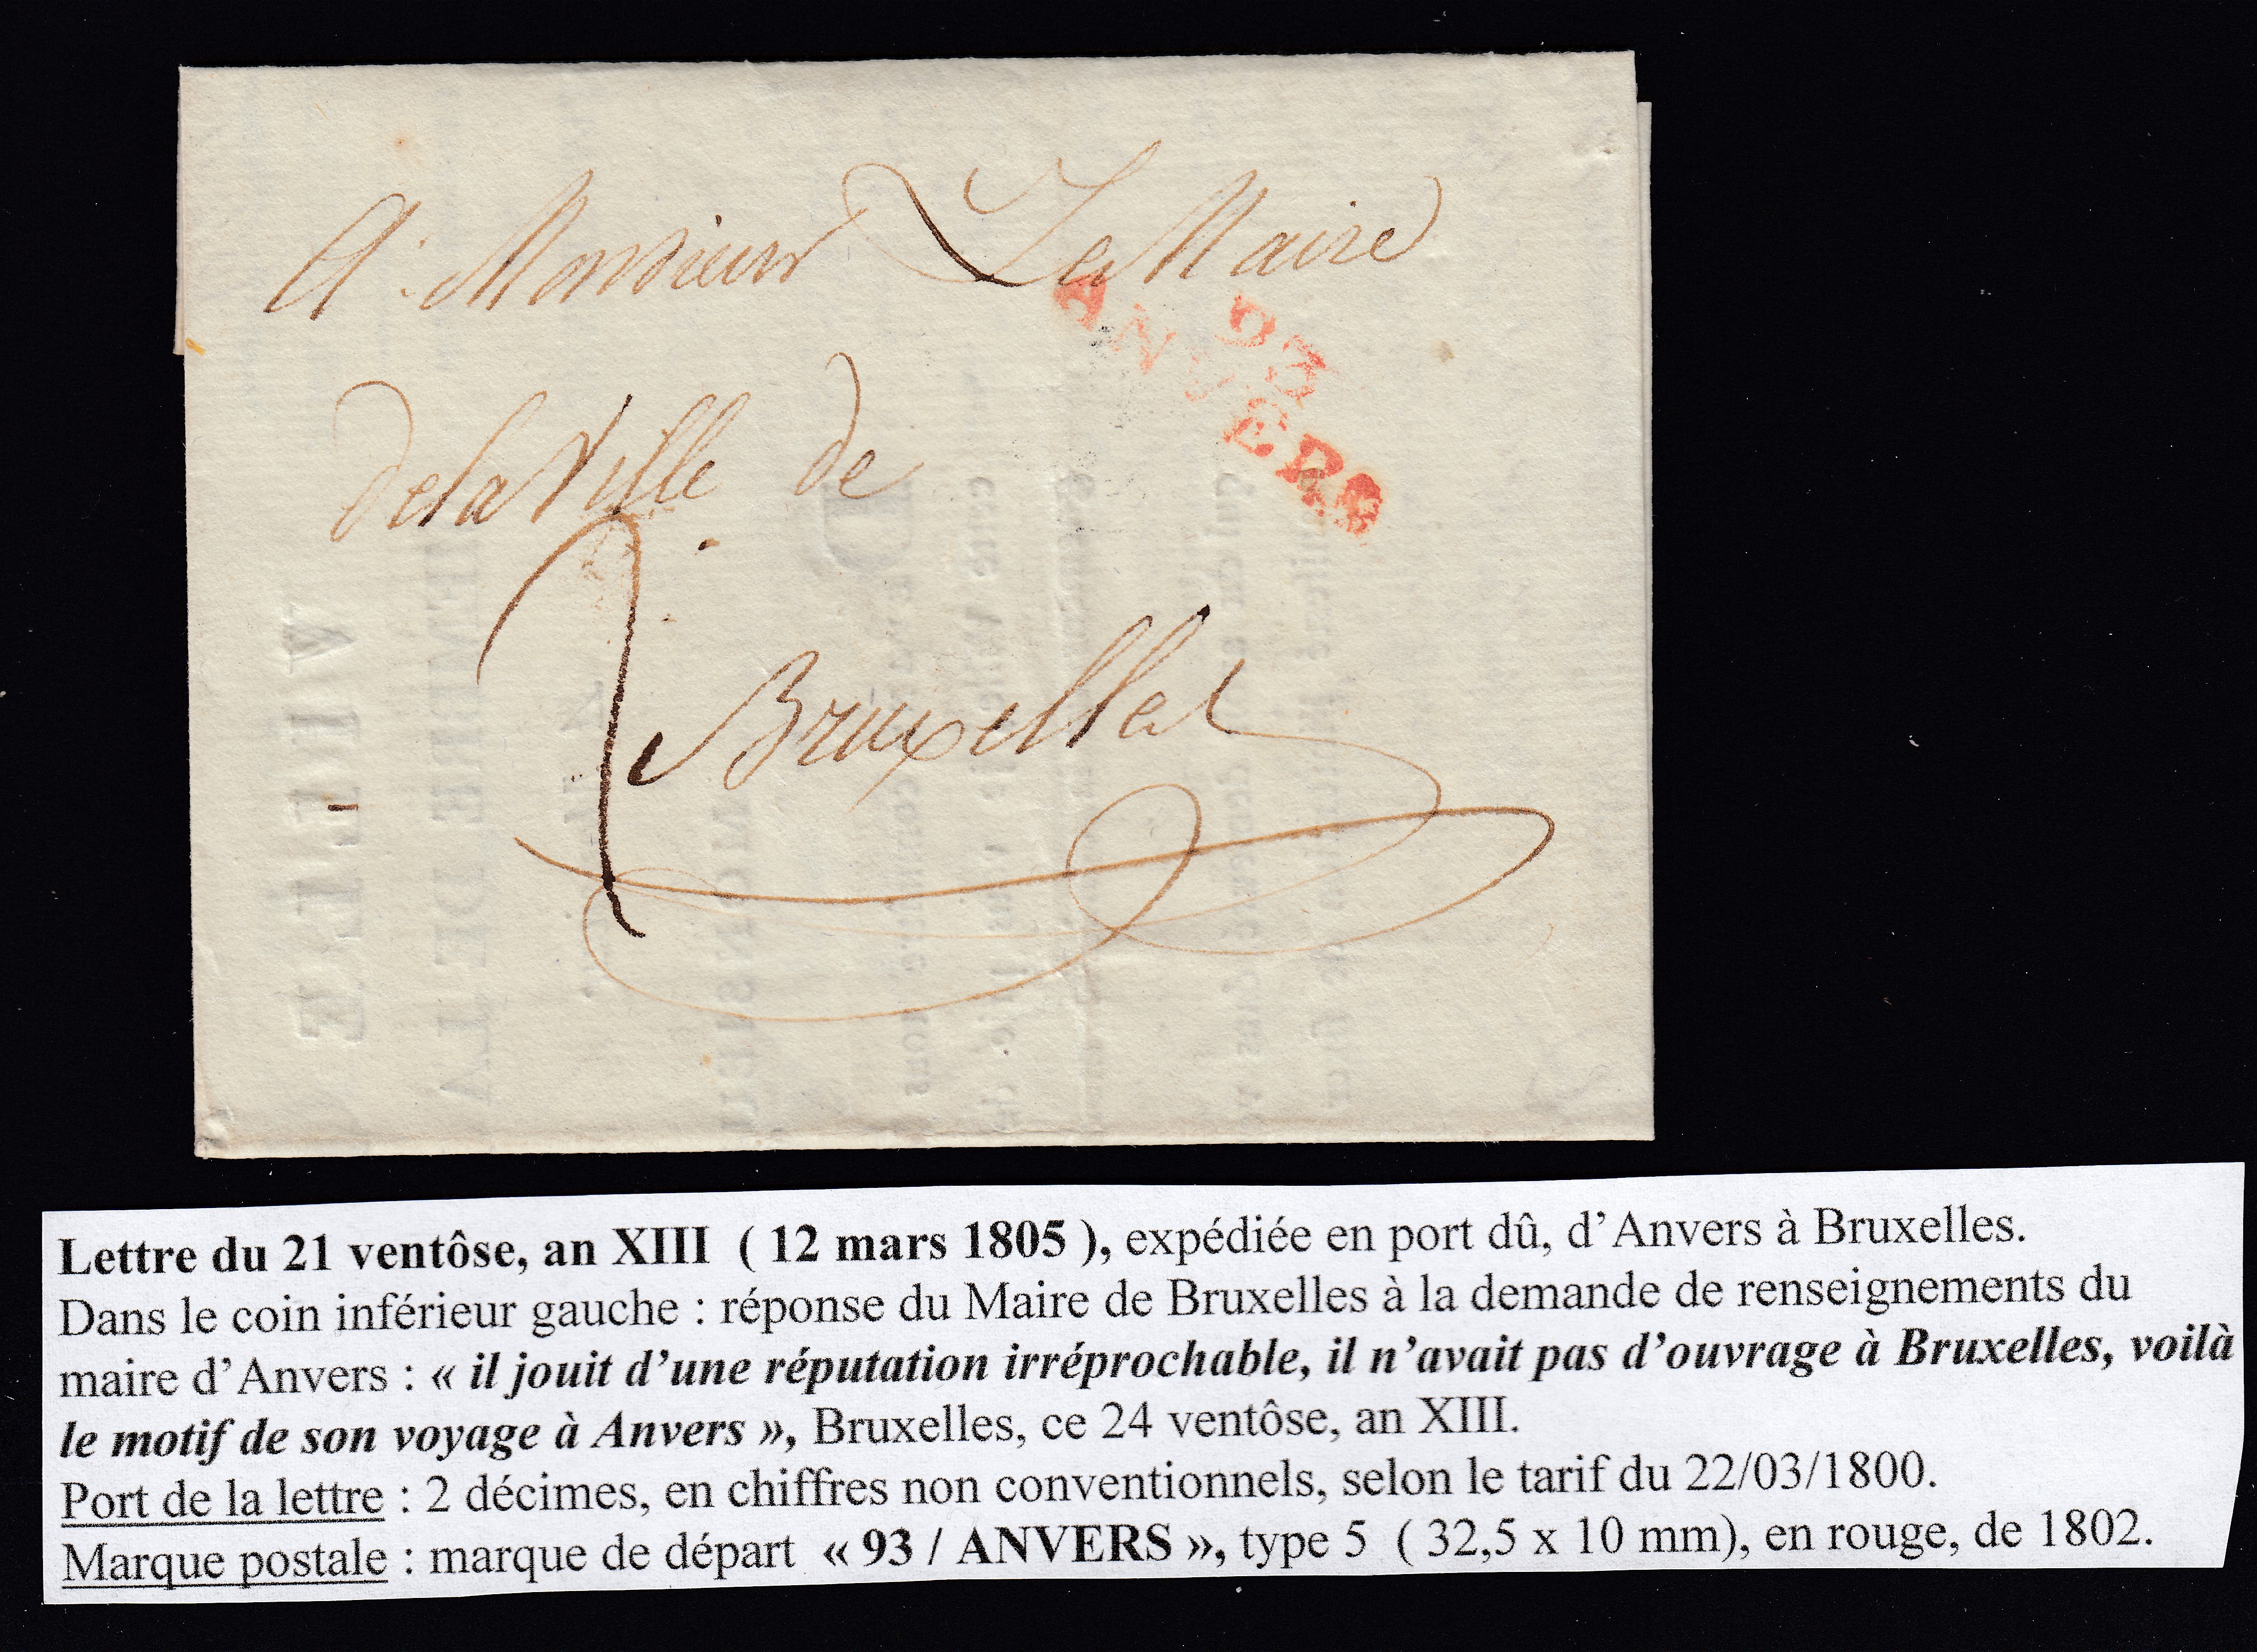 A Monsieur Le Maire
93
ANVERS
de la Ville de
2
Bruxelles
Lettre du 21 ventôse, an XIII ( 12 mars 1805 ), expédiée en port dû, d’Anvers à Bruxelles.
Dans le coin inférieur gauche : réponse du Maire de Bruxelles à la demande de renseignements du
maire d’Anvers : « il jouit d’une réputation irréprochable, il n’avait pas d’ouvrage à Bruxelles, voilà
le motif de son voyage à Anvers », Bruxelles, ce 24 ventôse, an XIII.
Port de la lettre : 2 décimes, en chiffres non conventionnels, selon le tarif du 22/03/1800.
Marque postale : marque de départ « 93 / ANVERS », type 5 ( 32,5 x 10 mm), en rouge, de 1802.